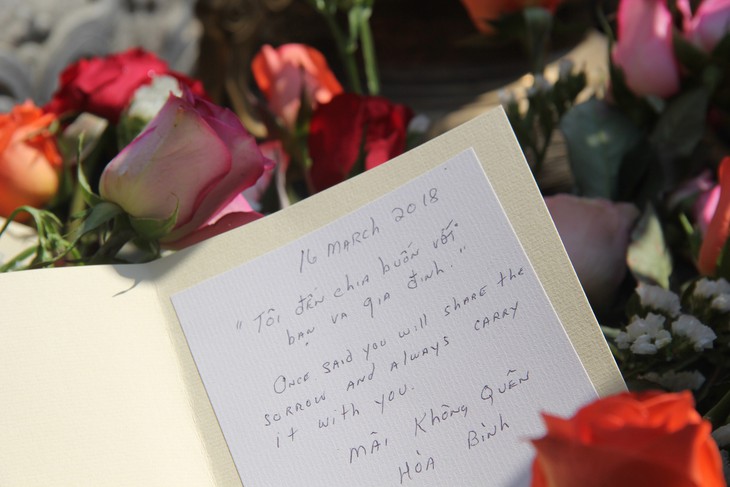 16 MARCH 2018
"TÔI ĐẾN CHIA BUỒN VỚI
BẠN VA GIA ĐINH."
ONCE SAID YOU WILL SHARE the
SORROW AND ALWAYS CARRY
it WITH YOU.
MÃI KHÔNG QUÊN
HÒA BÌNH